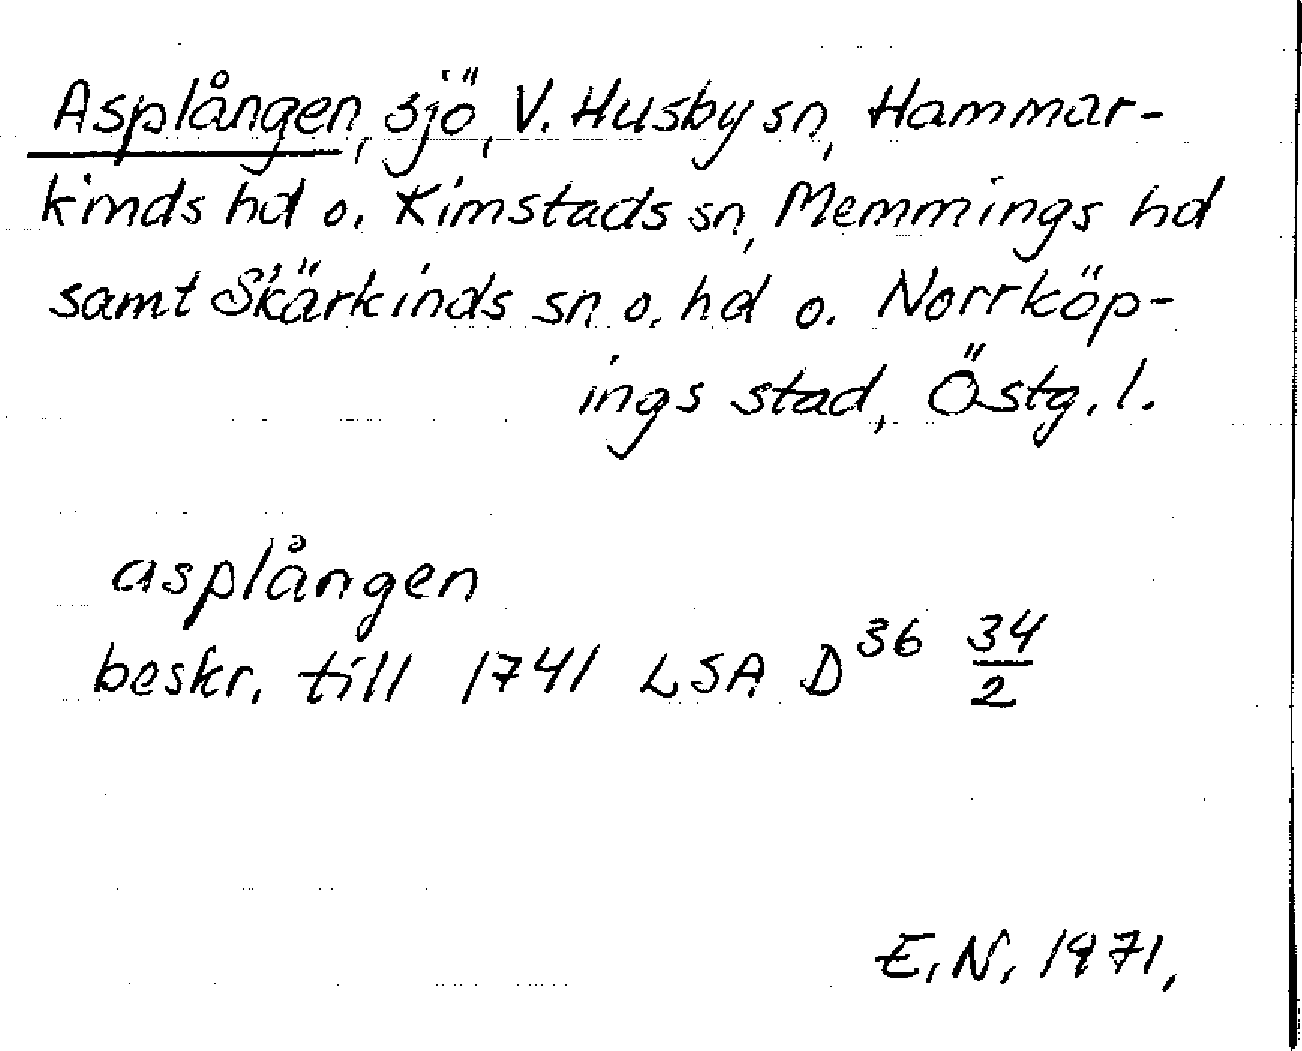 Asplången, sjö, V. Husby sn, Hammar-
kinds hd o. Kimstads sn, Memmings hd
samt Skärkinds sn o. hd o. Norrköp-
ings stad, Östg. l.
asplången
beskr. till 1741 LSA D³⁶ 34/2
E. N. 1971.